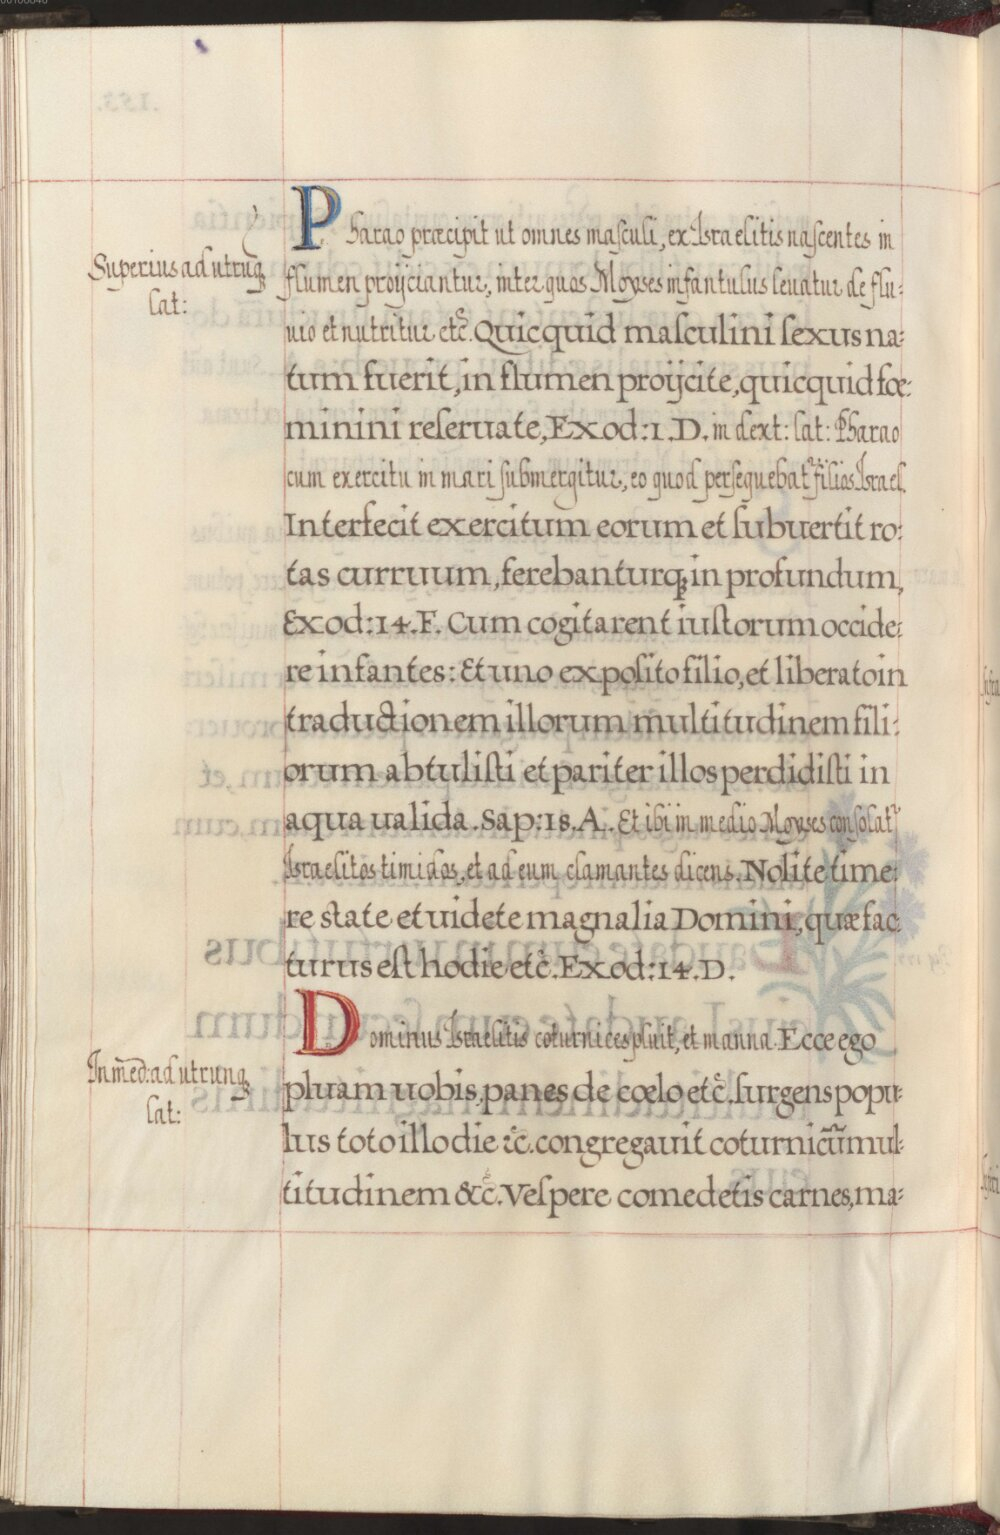 Superius ad utrunq;
lat:
Pharao præcipit ut omnes maſculi, ex Israelitis naſcentes in
flumen proijciantur, inter quos Moyses infantulus leuatur de flu:
uio et nutritur etc̄. Quicquid maſculini ſexus na:
tum fuerit, in flumen proijcite, quicquid fœ:
minini reſeruate, Exod: 1. D. in dext: lat: Pharao
cum exercitu in mari ſubmergitur, eo quod perſequebat᷑ filios Israel.
Interfecit exercitum eorum et ſubuertit ro:
tas curruum, ferebanturq; in profundum,
Exod: 14. F. Cum cogitarent iuſtorum occide:
re infantes: Et uno expoſito filio, et liberato in
traductionem illorum multitudinem fili:
orum abtuliſti et pariter illos perdidiſti in
aqua ualida. Sap: 18. A. Et ibi in medio Moyses conſolat᷑
Israelitas timidos, et ad eum clamantes dicens. Nolite time:
re state et uidete magnalia Domini, quæ fac
turus eſt hodie etc̄. Exod: 14. D.
In med: ad utrunq;
lat:
Dominus Israelitis coturnices pluit, et manna. Ecce ego
pluam uobis, panes de cœlo etc̄. ſurgens popu:
lus toto illo die ⁊c̄. congregauit coturnicū mul:
titudinem &c̄. Veſpere comedetis carnes, ma: